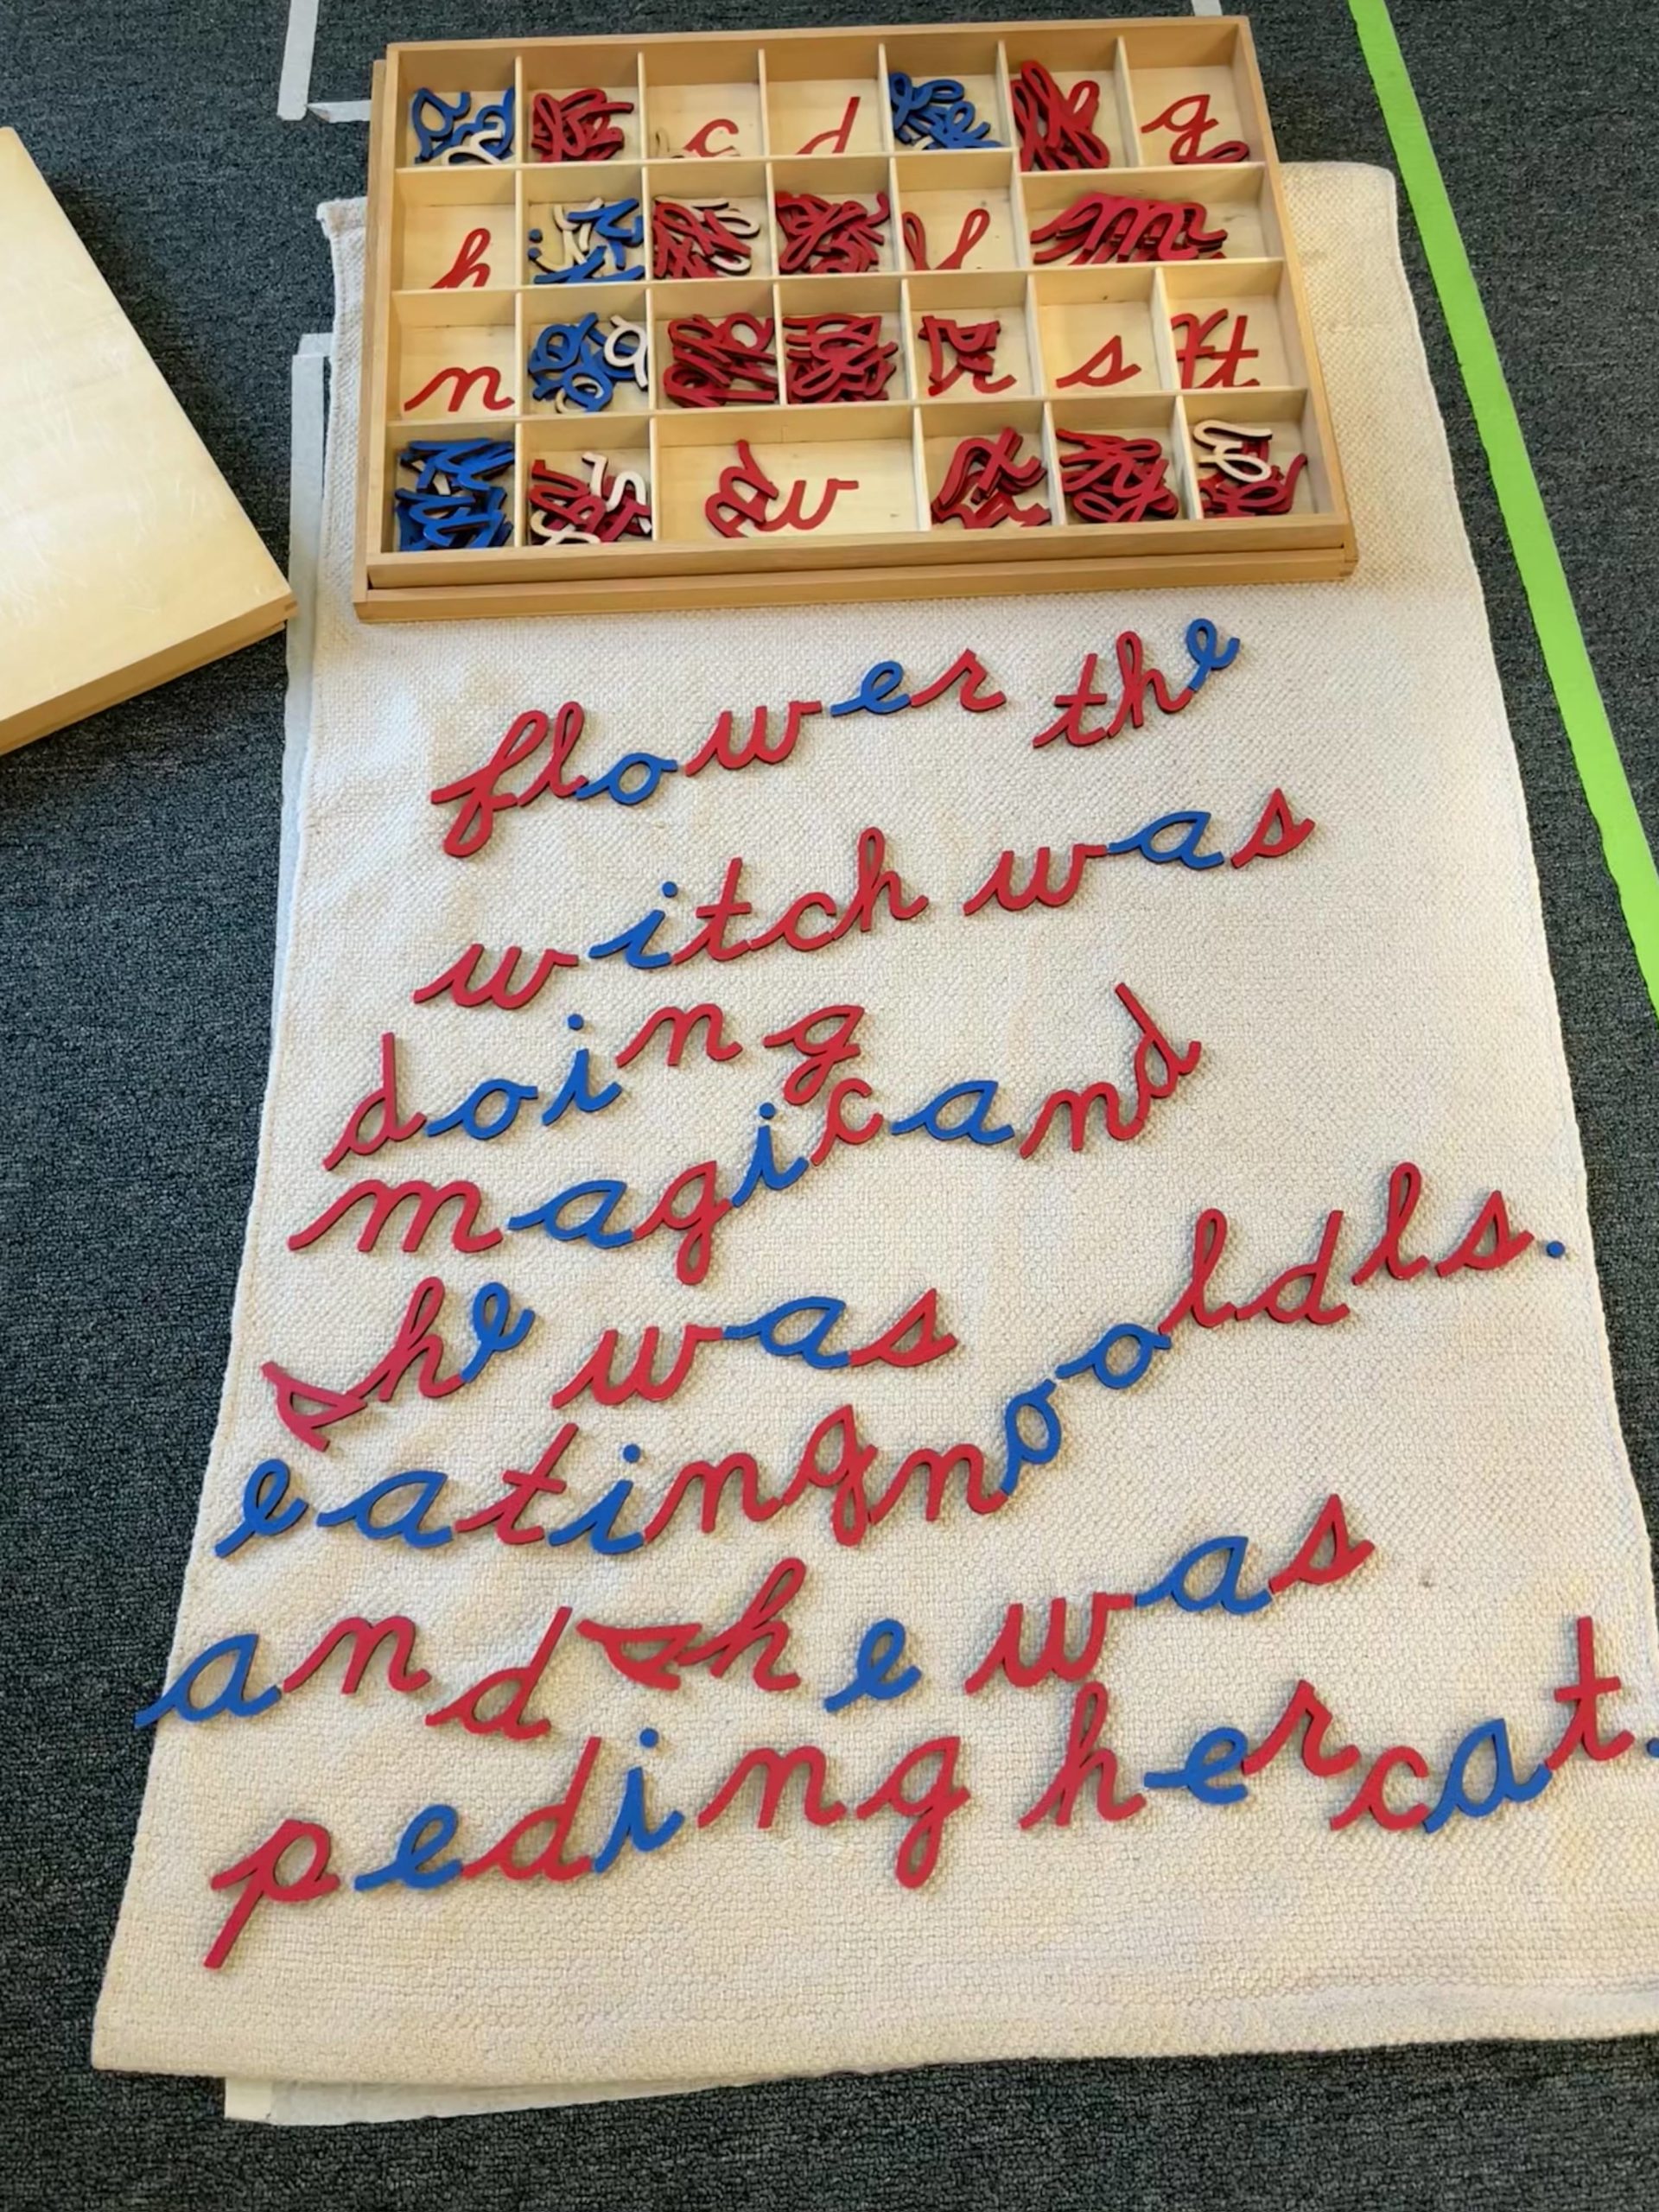 flower the
witch was
doing
magic and
she was
eating nooldls.
and she was
peding her cat.